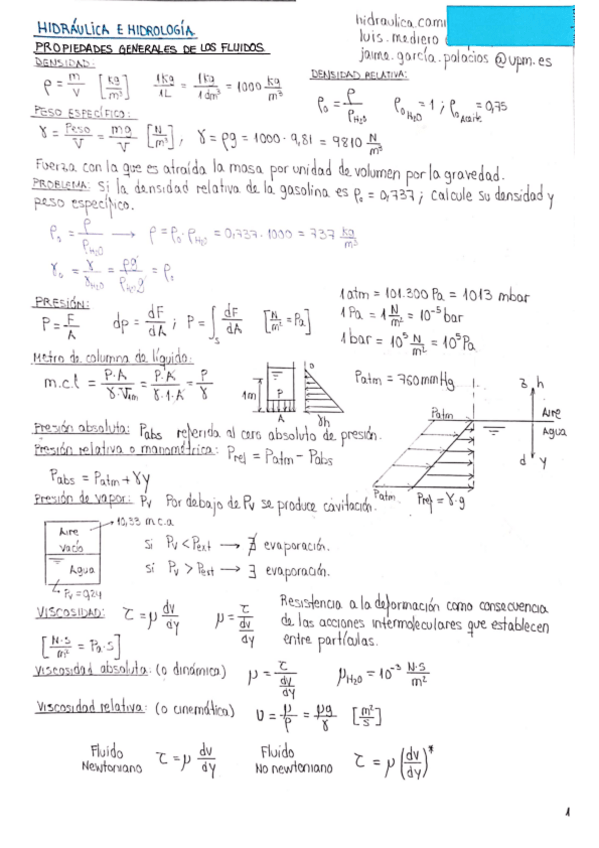 HIDRÁULICA E HIDROLOGÍA
hidraulica.cami
luis.mediero
jaime.garcía.palacios@upm.es
PROPIEDADES GENERALES DE LOS FLUIDOS
DENSIDAD:
ρ = m/V [kg/m³] 1kg/1L = 1kg/1dm³ = 1000 kg/m³
DENSIDAD RELATIVA:
ρ₀ = ρ/ρH₂O ρ₀H₂O = 1 ; ρ₀Aceite = 0,75
PESO ESPECÍFICO:
γ = Peso/V = mg/V [N/m³], γ = ρg = 1000·9,81 = 9810 N/m³
Fuerza con la que es atraída la masa por unidad de volumen por la gravedad.
PROBLEMA: Si la densidad relativa de la gasolina es ρ₀ = 0,737 ; calcule su densidad y
peso específico.
ρ₀ = ρ/ρH₂O → ρ = ρ₀·ρH₂O = 0,737·1000 = 737 kg/m³
γ₀ = γ/γH₂O = ρg/ρH₂O·g = ρ₀
PRESIÓN:
P = F/A dp = dF/dA ; P = ∫s dF/dA [N/m² = Pa]
1 atm = 101.300 Pa = 1013 mbar
1 Pa = 1 N/m² = 10⁻⁵ bar
1 bar = 10⁵ N/m² = 10⁵ Pa
Metro de columna de líquido:
m.c.l = P·A/γ·V1m = P·A/γ·1·A = P/γ
1m P A 0 γh
Patm = 760 mmHg
Patm z h Aire
Agua
d y
Patm Prel = γ·g
Presión absoluta: Pabs referida al cero absoluto de presión.
Presión relativa o manométrica: Prel = Patm - Pabs
Pabs = Patm + γy
Presión de vapor: Pv Por debajo de Pv se produce cavitación.
10,33 m.c.a
Aire
vacío
Agua
Pv = 0,24
si Pv < Pext → ∄ evaporación.
si Pv > Pext → ∃ evaporación.
VISCOSIDAD: τ = μ dv/dy μ = τ/(dv/dy)
[N·s/m² = Pa·s]
Resistencia a la deformación como consecuencia
de las acciones intermoleculares que establecen
entre partículas.
Viscosidad absoluta: (o dinámica) μ = τ/(dv/dy) μH₂O = 10⁻³ N·s/m²
Viscosidad relativa: (o cinemática) υ = μ/ρ = μg/γ [m²/s]
Fluido Newtoniano τ = μ dv/dy Fluido No newtoniano τ = μ(dv/dy)*
1